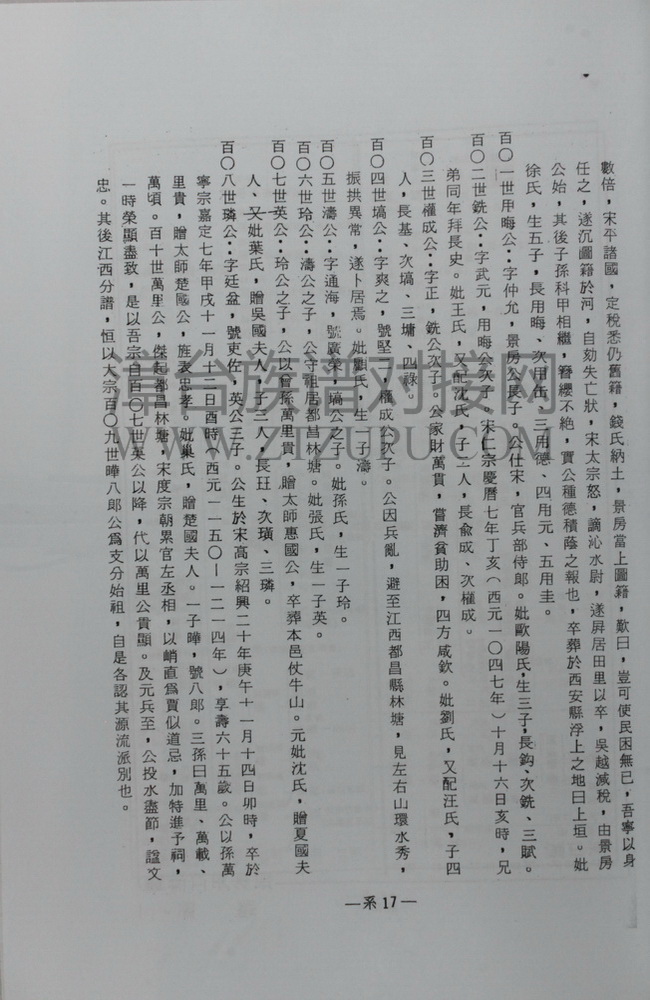 數倍，宋平諸國，定稅悉仍舊籍，錢氏納土，景房當上圖籍，歎曰，豈可使民困無已，吾寧以身
任之，遂沉圖籍於河，自劾失亡狀，宋太宗怒，謫沁水尉，遂屛居田里以卒，吳越減稅，由景房
公始，其後子孫科甲相繼，簪纓不絶，實公種德積蔭之報也，卒葬於西安縣浮上之地曰上垣。妣
徐氏，生五子，長用晦、次用缶、三用德、四用元、五用圭。
百〇一世用晦公：字仲允，景房公長子。公仕宋，官兵部侍郎。妣歐陽氏，生三子，長鈎、次銑、三賦。
百〇二世銑公：字武元，用晦公次子，宋仁宗慶曆七年丁亥（西元一〇四七年）十月十六日亥時，兄
弟同年拜長史。妣王氏，又配沈氏，子二人，長兪成、次權成。
百〇三世權成公：字正，銑公次子。公家財萬貫，嘗濟貧助困，四方咸欽。妣劉氏，又配汪氏，子四
人，長基、次塥、三墉、四祿。
百〇四世塥公：字爽之，號堅二，權成公次子。公因兵亂，避至江西都昌縣林塘，見左右山環水秀，
振拱異常，遂卜居焉。妣顧氏，生一子濤。
百〇五世濤公：字通海，號廣萊，塥公之子。妣孫氏，生一子玲。
百〇六世玲公：濤公之子，公守祖居都昌林塘。妣張氏，生一子英。
百〇七世英公：玲公之子，公以曾孫萬里貴，贈太師惠國公，卒葬本邑仗牛山。元妣沈氏，贈夏國夫
人、又妣葉氏，贈吳國夫人，子三人，長玨、次璜、三璘。
百〇八世璘公：字廷盆，號吏佐，英公三子。公生於宋高宗紹興二十年庚午十一月十四日卯時，卒於
寧宗嘉定七年甲戌十一月十二日酉時（西元一一五〇—一二一四年），享壽六十五歲。公以孫萬
里貴，贈太師楚國公，旌表忠孝。妣巢氏，贈楚國夫人。一子曄，號八郎。三孫曰萬里、萬載、
萬頃。百十世萬里公，傑起都昌林塘，宋度宗朝累官左丞相，以峭直爲賈似道忌，加特進予祠，
一時榮顯盡致，是以吾宗自百〇七世英公以降，代以萬里公貴顯。及元兵至，公投水盡節，諡文
忠。其後江西分譜，恒以大宗百〇九世曄八郎公爲支分始祖，自是各認其源流派別也。
—系17—
漳台族谱对接网
WWW.ZTZUPU.COM